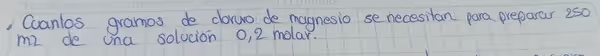 , Cuanlos gramos de cloruro de magnesio se necesitan para preparar 250
m2 de una solución 0,2 molar.